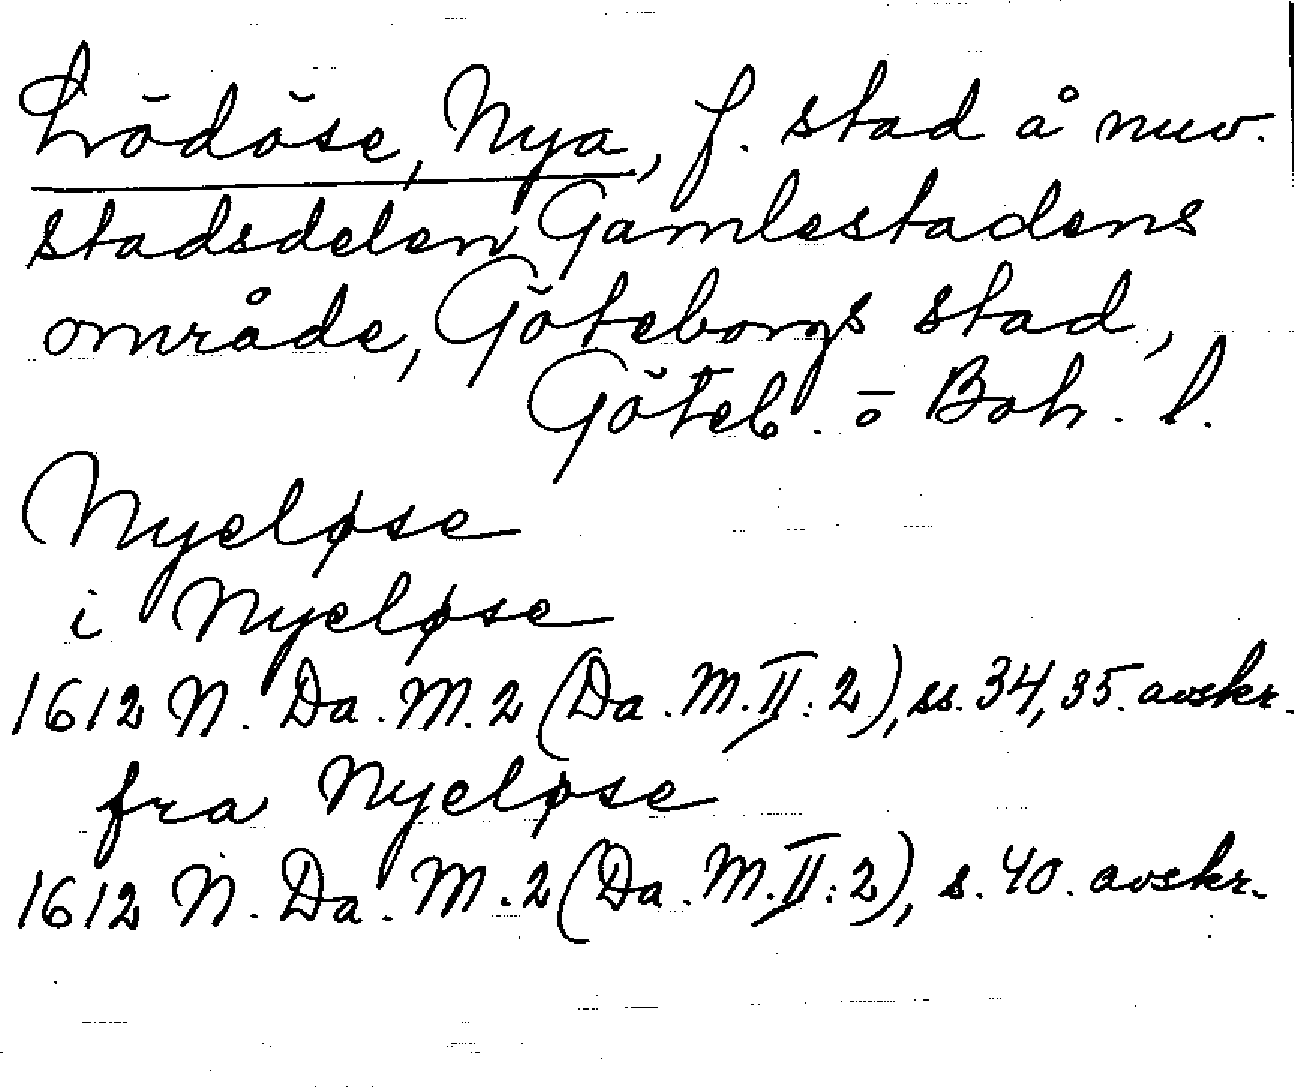 Lödöse, Nya, f. stad å nuv.
stadsdelen Gamlestadens
område, Göteborgs stad,
Göteb. o Boh. l.
Nyeløse
i Nyeløse
1612 N. Da. M. 2 (Da. M. II: 2), ss. 34, 35. avskr.
fra Nyeløse
1612 N. Da. M. 2 (Da. M. II: 2), s. 40. avskr.